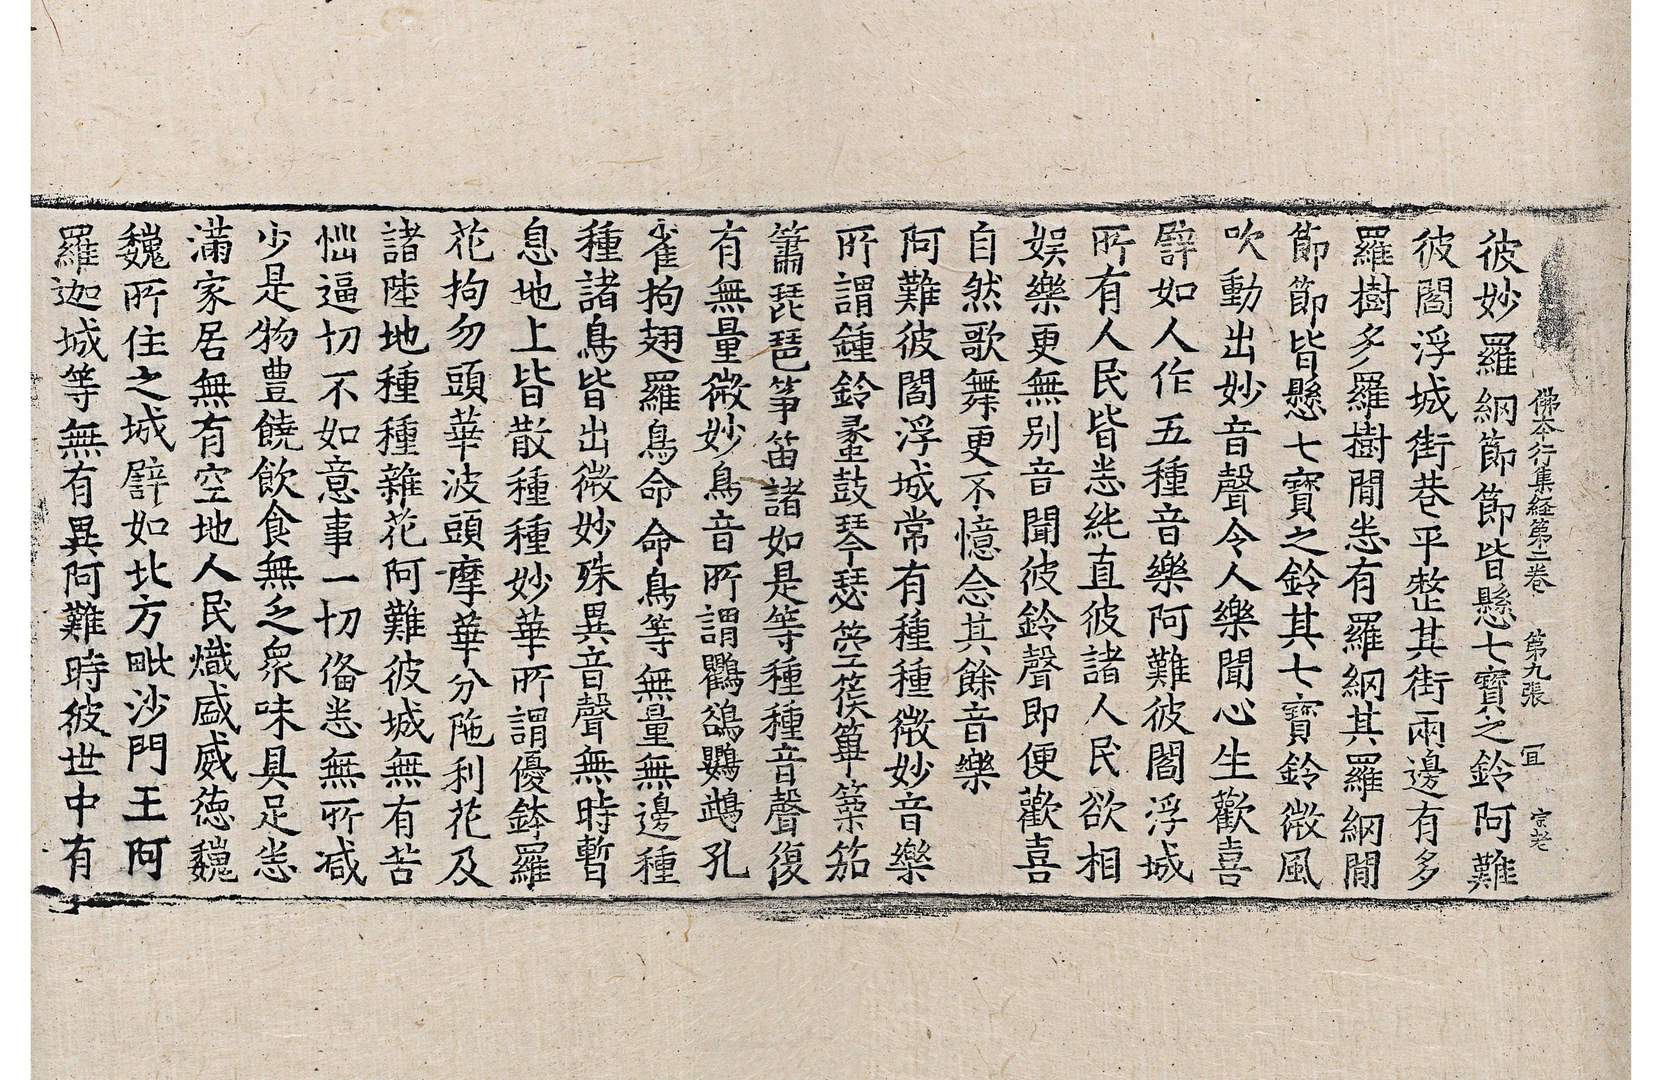 佛本行集経第二卷 第九張 冝 宗老
彼妙羅網節節皆懸七寶之鈴阿難
彼閻浮城街巷平整其街兩邊有多
羅樹多羅樹間悉有羅網其羅網間
節節皆懸七寶之鈴其七寶鈴微風
吹動出妙音聲令人樂聞心生歡喜
譬如人作五種音樂阿難彼閻浮城
所有人民皆悉純直彼諸人民欲相
娛樂更無別音聞彼鈴聲即便歡喜
自然歌舞更不憶念其餘音樂
阿難彼閻浮城常有種種微妙音樂
所謂鍾鈴蠡鼓琴瑟箜篌篳篥笳
簫琵琶箏笛諸如是等種種音聲復
有無量微妙鳥音所謂鸜鵒鸚鵡孔
雀拘翅羅鳥命命鳥等無量無邊種
種諸鳥皆出微妙殊異音聲無時暫
息地上皆散種種妙華所謂優鉢羅
花拘勿頭華波頭摩華分陁利花及
諸陸地種種雜花阿難彼城無有苦
惱逼切不如意事一切俻悉無所减
少是物豊饒飲食無乏衆味具足悉
滿家居無有空地人民熾盛威德巍
巍所住之城譬如北方毗沙門王阿
羅迦城等無有異阿難時彼世中有